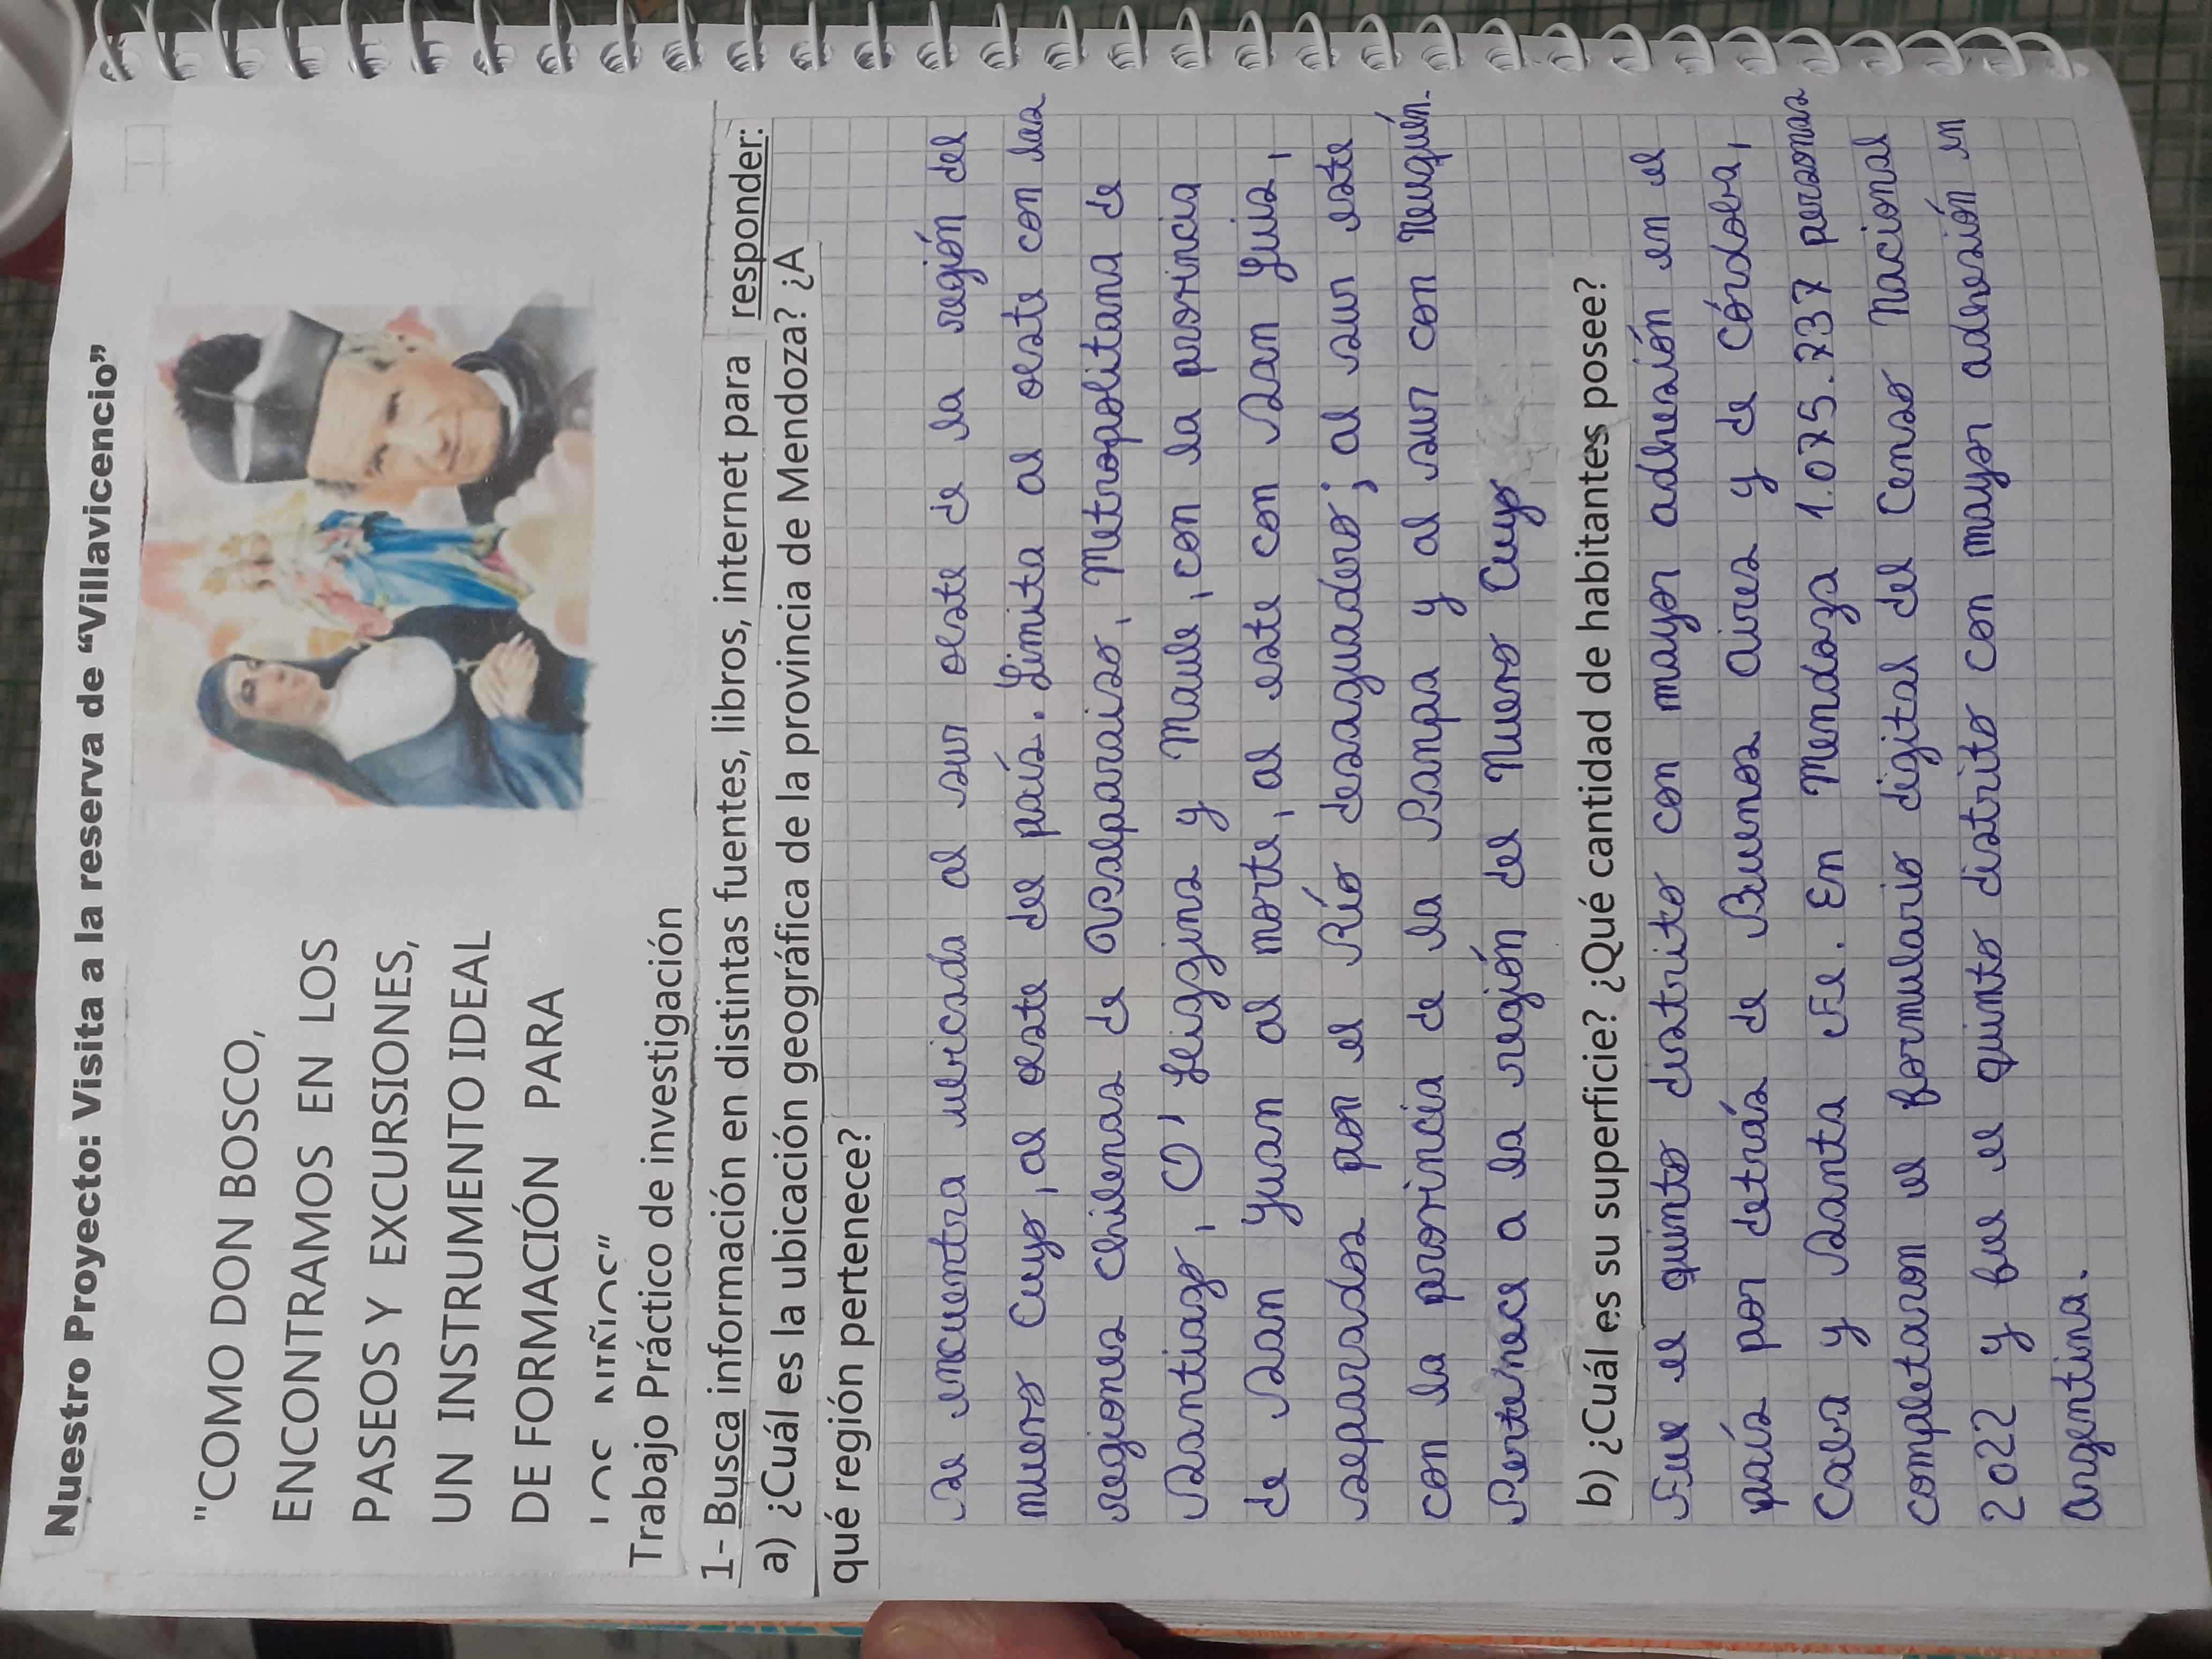 Nuestro Proyecto: Visita a la reserva de “Villavicencio”
"COMO DON BOSCO,
ENCONTRAMOS EN LOS
PASEOS Y EXCURSIONES,
UN INSTRUMENTO IDEAL
DE FORMACIÓN PARA
LOS NIÑOS"
Trabajo Práctico de investigación
1- Busca información en distintas fuentes, libros, internet para responder:
a) ¿Cuál es la ubicación geográfica de la provincia de Mendoza? ¿A
qué región pertenece?
Se encuentra ubicada al sur oeste de la región del
nuevo Cuyo, al oeste del país. Limita al oeste con las
regiones chilenas de Valparaiso, Metropolitana de
Santiago, O' Heiggins y Maule, con la provincia
de San Juan al norte, al este con San Luis,
separados por el Río desaguadero; al sur este
con la provincia de la Pampa y al sur con Neuquén.
Pertenece a la región del Nuevo Cuyo
b) ¿Cuál es su superficie? ¿Qué cantidad de habitantes posee?
Fue el quinto distrito con mayor adhesión en el
país por detrás de Buenos Aires y de Córdoba,
Caba y Santa Fe. En Mendoza 1.075.737 personas
completaron el formulario digital del Censo Nacional
2022 y fue el quinto distrito con mayor adhesión en
Argentina.